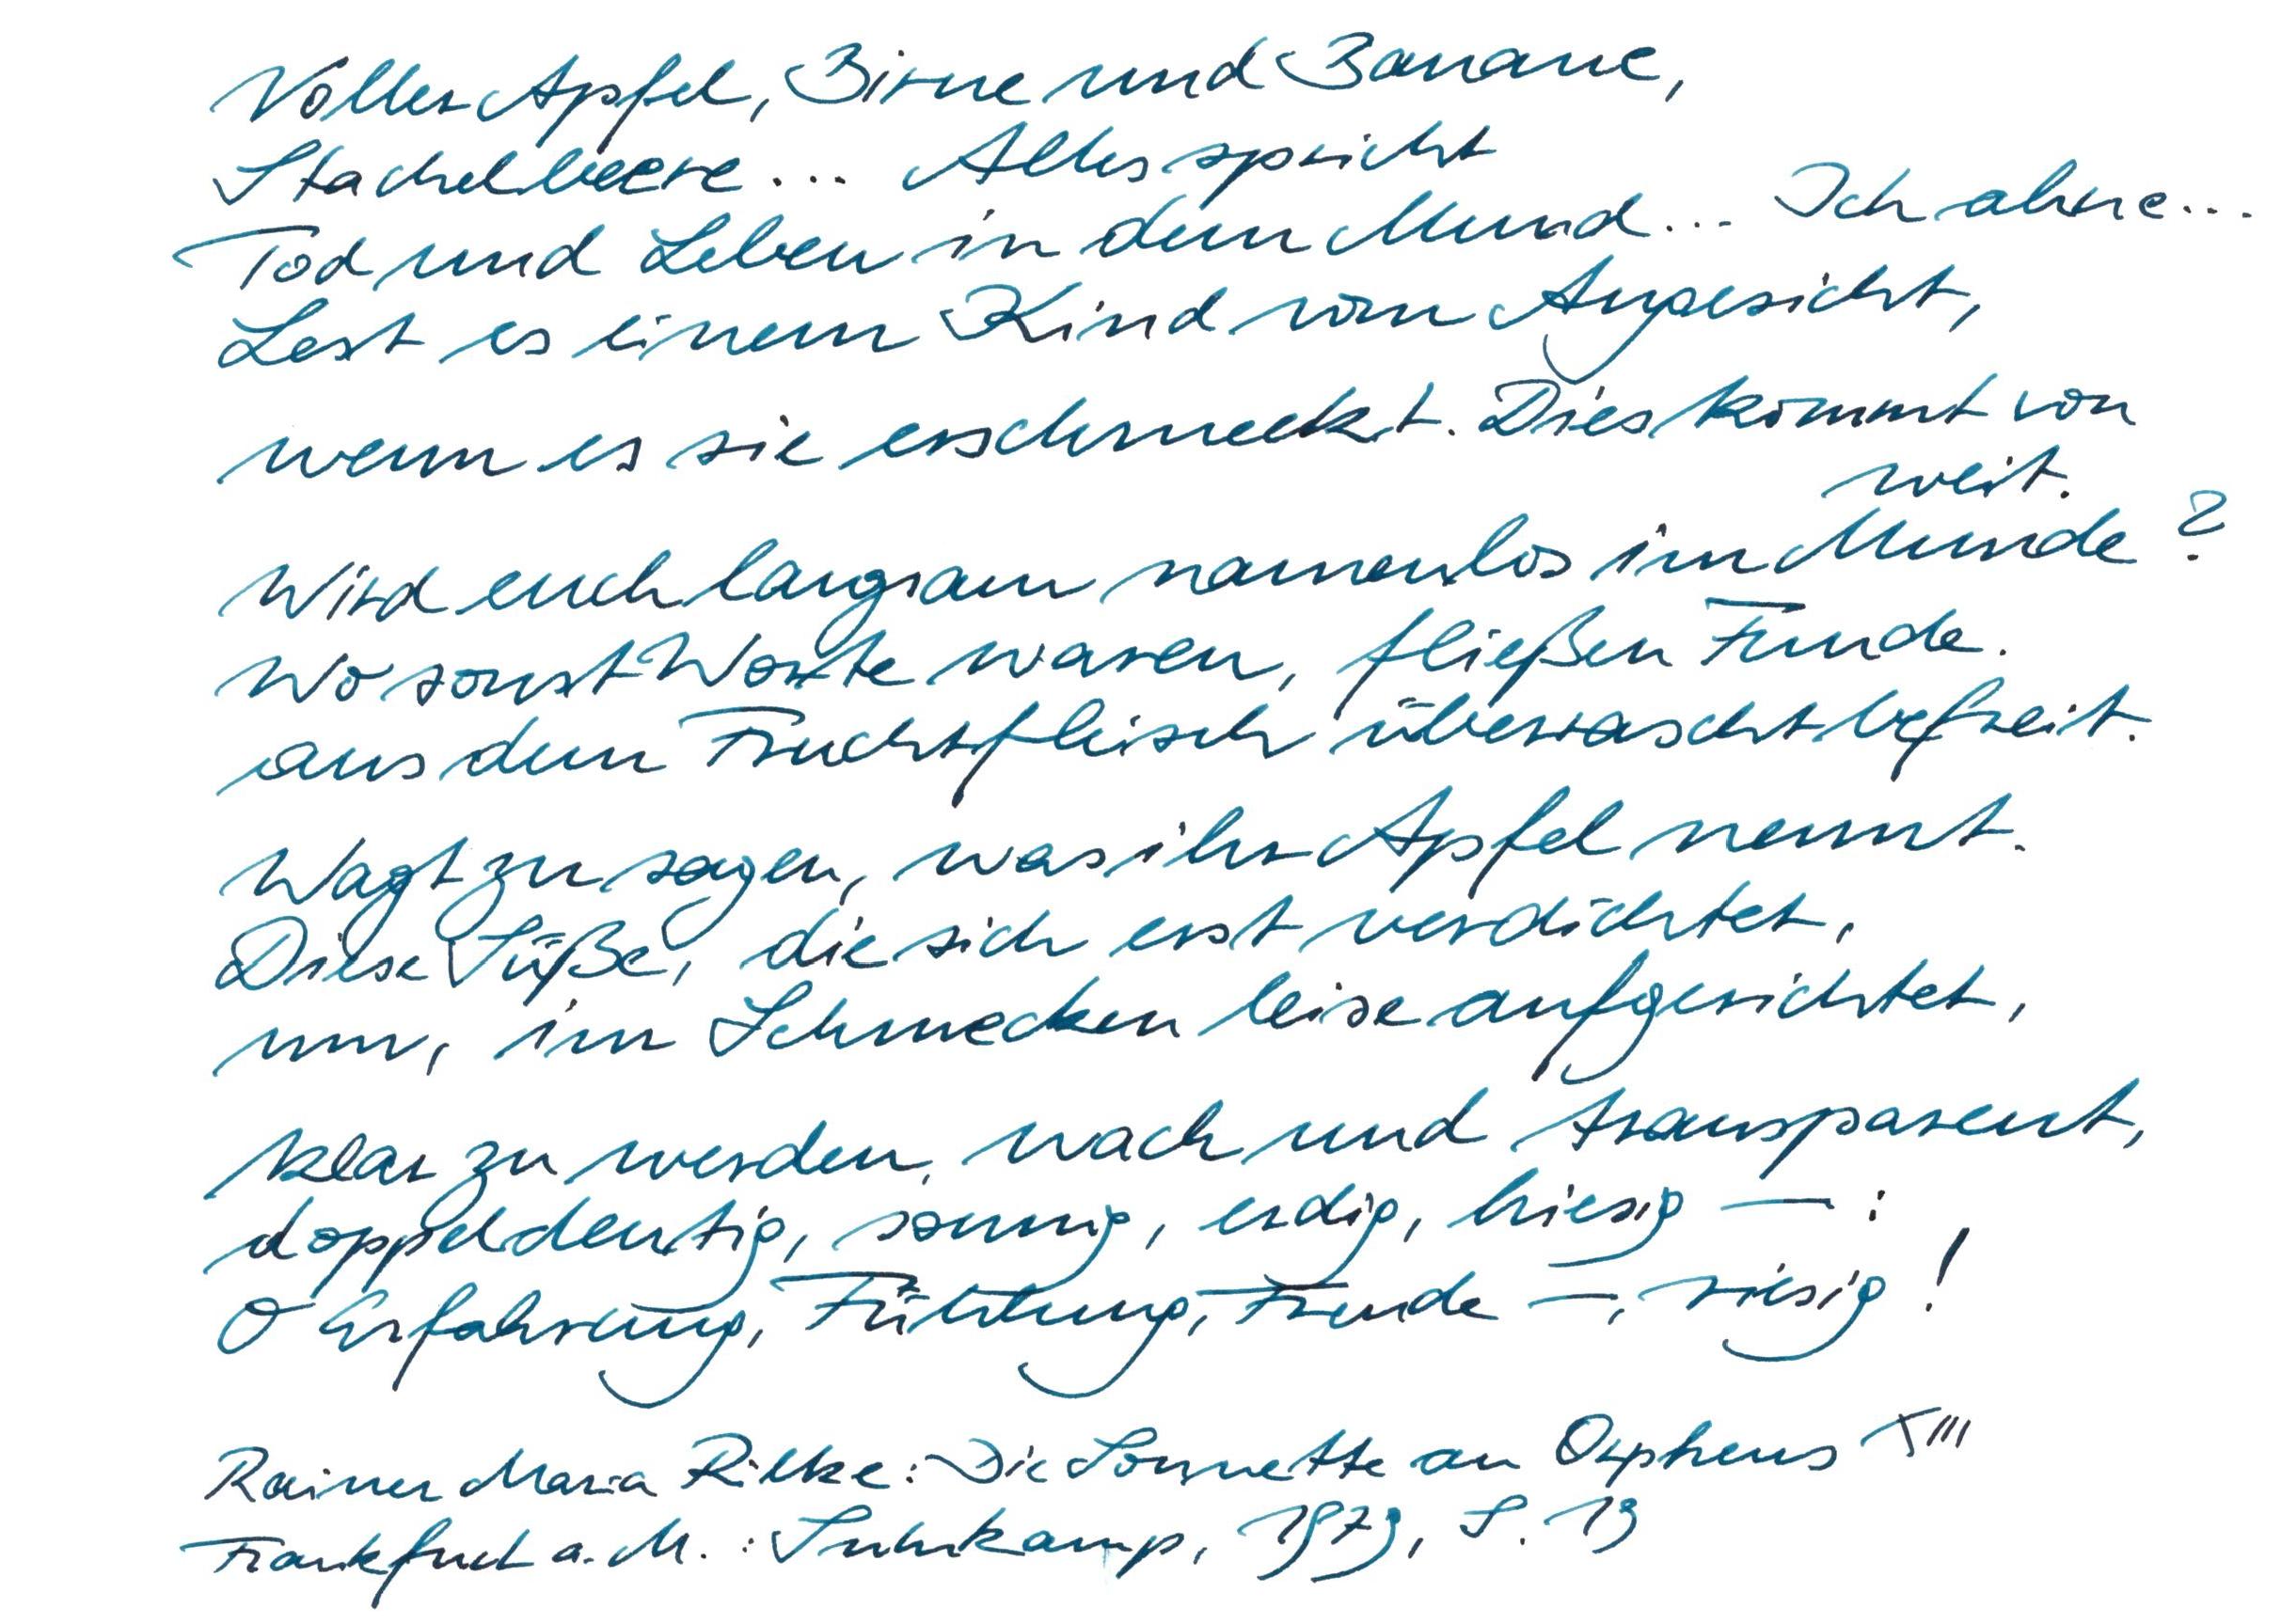 Voller Apfel, Birne und Banane,
Stachelbeere... Alles spricht
Tod und Leben in den Mund... Ich ahne...
Lest es einem Kind vom Angesicht,
wenn es sie erschmeckt. Dies kommt von
weit.
Wird euch langsam namenlos im Munde?
Wo sonst Worte waren, fließen Funde.
aus dem Fruchtfleisch überrascht befreit.
Wagt zu sagen, was ihr Apfel nennt.
Diese Süße, die sich erst verdichtet,
um, im Schmecken leise aufgerichtet,
klar zu werden, wach und transparent,
doppeldeutig, sonnig, erdig, hiesig —:
O Erfahrung, Fühlung, Freude —, riesig!
Rainer Maria Rilke: Die Sonette an Orpheus
Frankfurt a. M.: Suhrkamp, 1973, S. 19